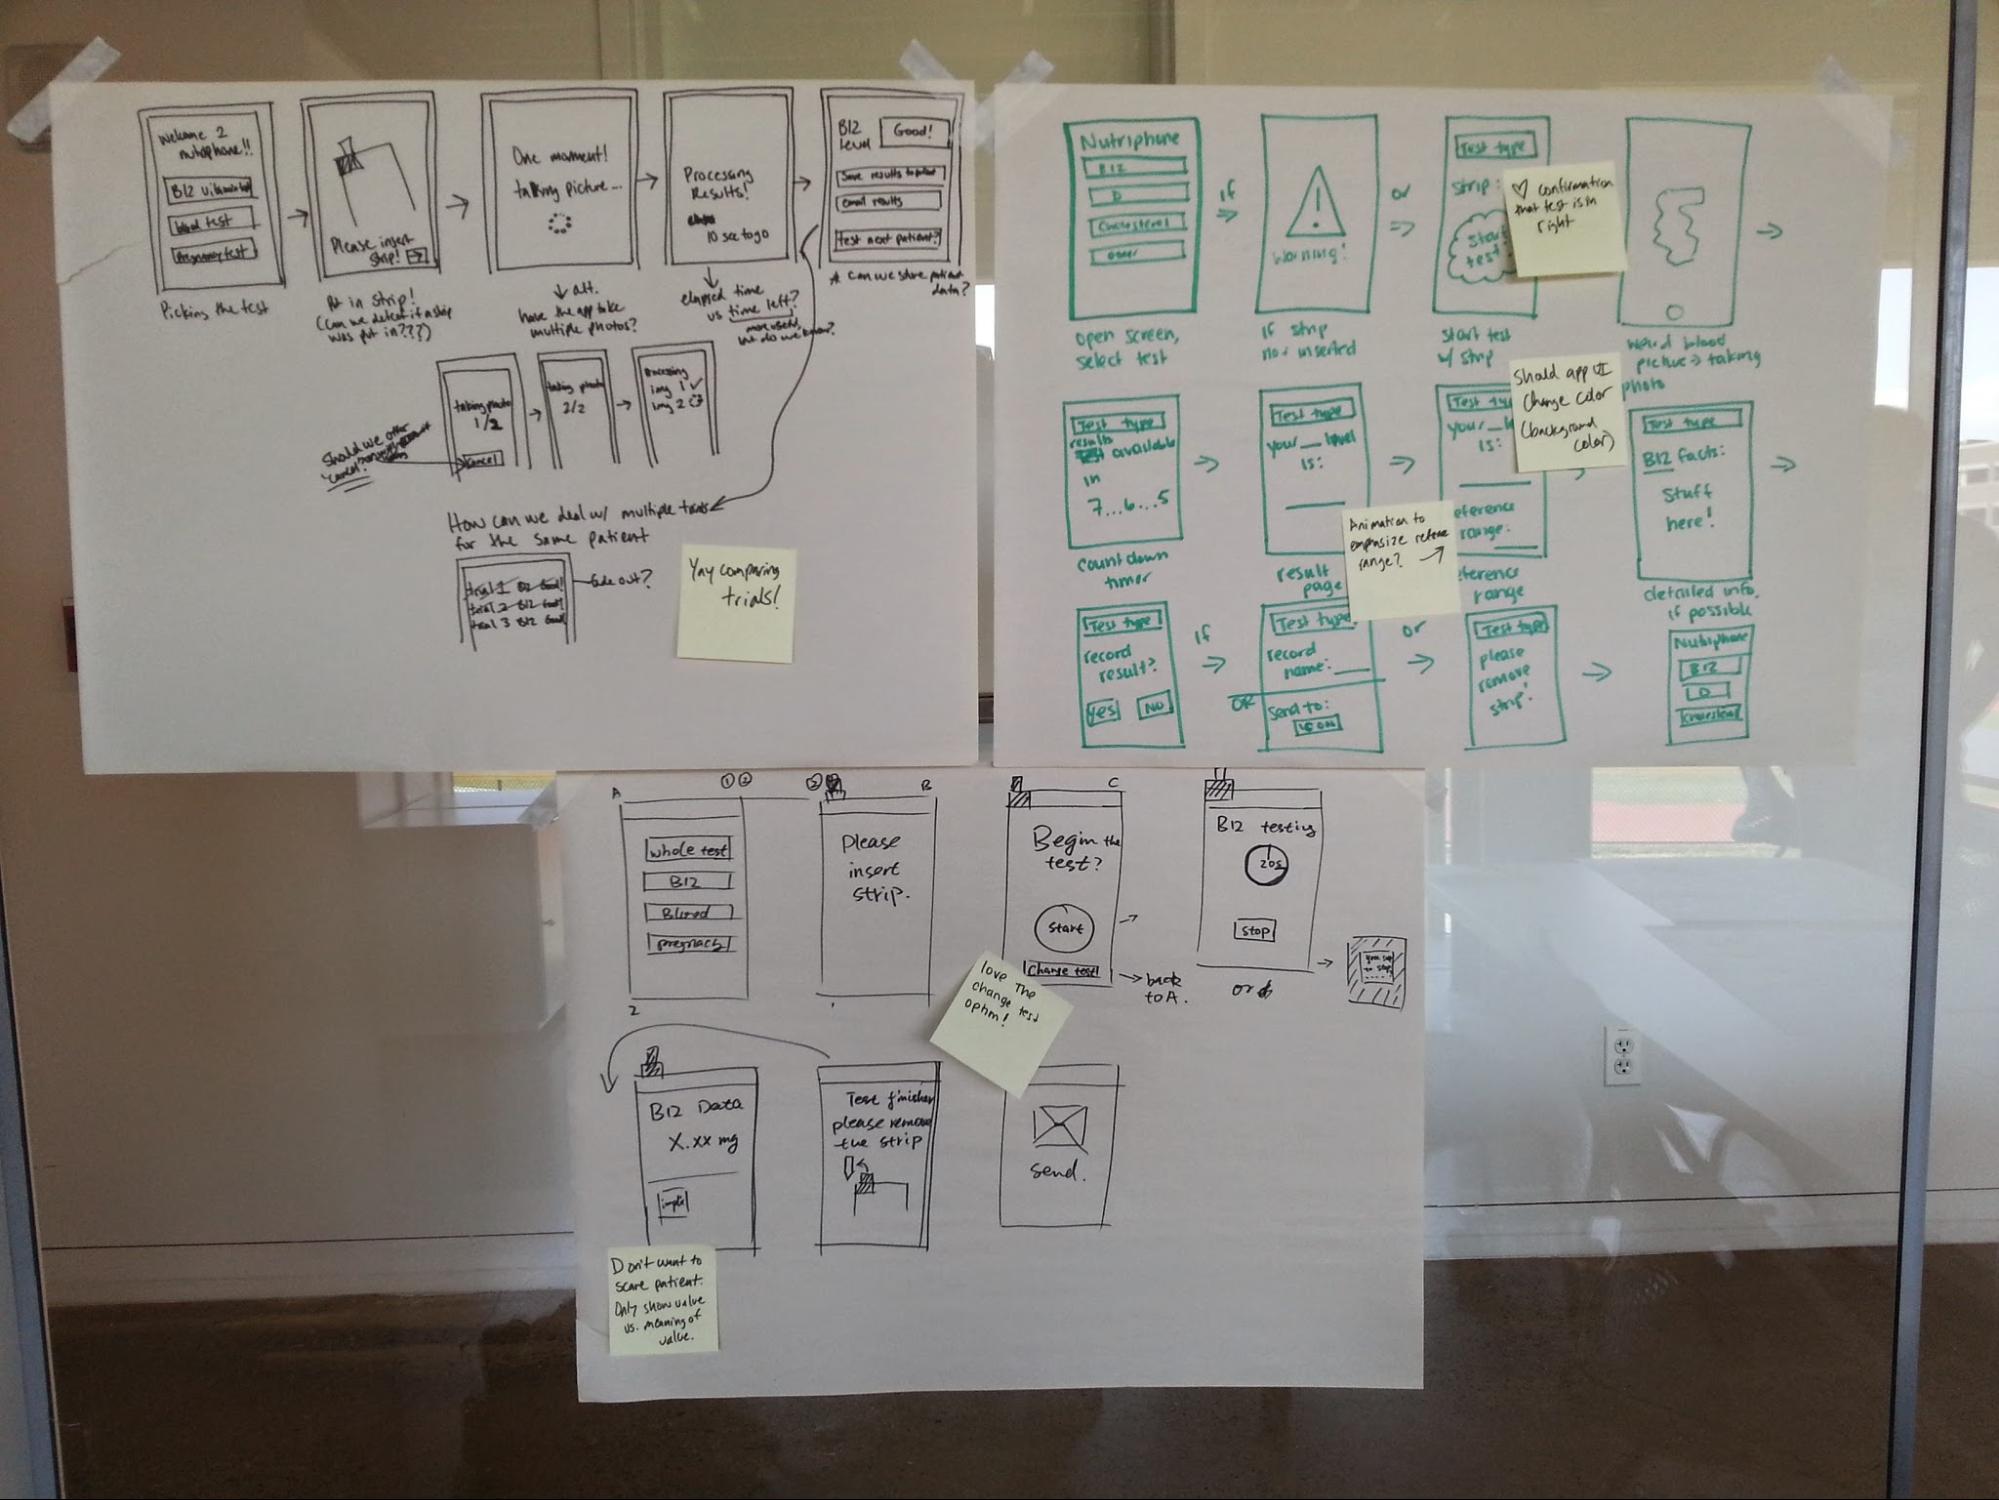 Welcome 2
nutriphone!!
B12 vitamin test
blood test
Pregnancy test
Picking the test
Please insert
strip!
Put in strip!
(can we detect if a strip
was put in???)
One moment!
taking picture...
alt.
have the app take
multiple photos?
Processing
Results!
10 sec to go
elapsed time
vs time left?
more useful,
but do we know?
B12
Level
Good!
Save results to
email results
test next patient?
* Can we store patient
data?
taking photo
1/2
cancel
taking photo
2/2
Processing
img 1 ✓
img 2
Should we offer
"cancel?"
How can we deal w/ multiple trials
for the same patient
trial 1 B12 Good!
trial 2 B12 Good!
trial 3 B12 Good!
fade out?
Yay comparing
trials!
Nutriphone
B12
D
Cholesterol
other
open screen,
select test
if
Warning!
if strip
not inserted
or
Test type
strip:
Start
test
start test
w/ strip
♡ confirmation
that test is in
right
weird blood
picture → taking
photo
Test type
results
available
in
7...6...5
count down
timer
Test type
your __ level
is:
result
page
Test type
your __
is:
eference
range:
eference
range
Animation to
emphasize
range? →
Should app UI
change color
(background
color)
Test type
B12 facts:
Stuff
here!
detailed info,
if possible
Test type
record
result?
Yes
NO
if
Test type
record
name:
OR
send to:
or
Test type
please
remove
strip!
Nutriphone
B12
D
Cholesterol
A
① ②
whole test
B12
Blood
pregnacy
2
②
B
Please
insert
strip.
C
Begin the
test?
start
Change test
→ back
to A.
love the
change test
option!
B12 testing
20s
stop
or
B12 Data
X.xx mg
Test finished
please remove
the strip
send.
Don't want to
scare patient.
Only show value
vs. meaning of
value.